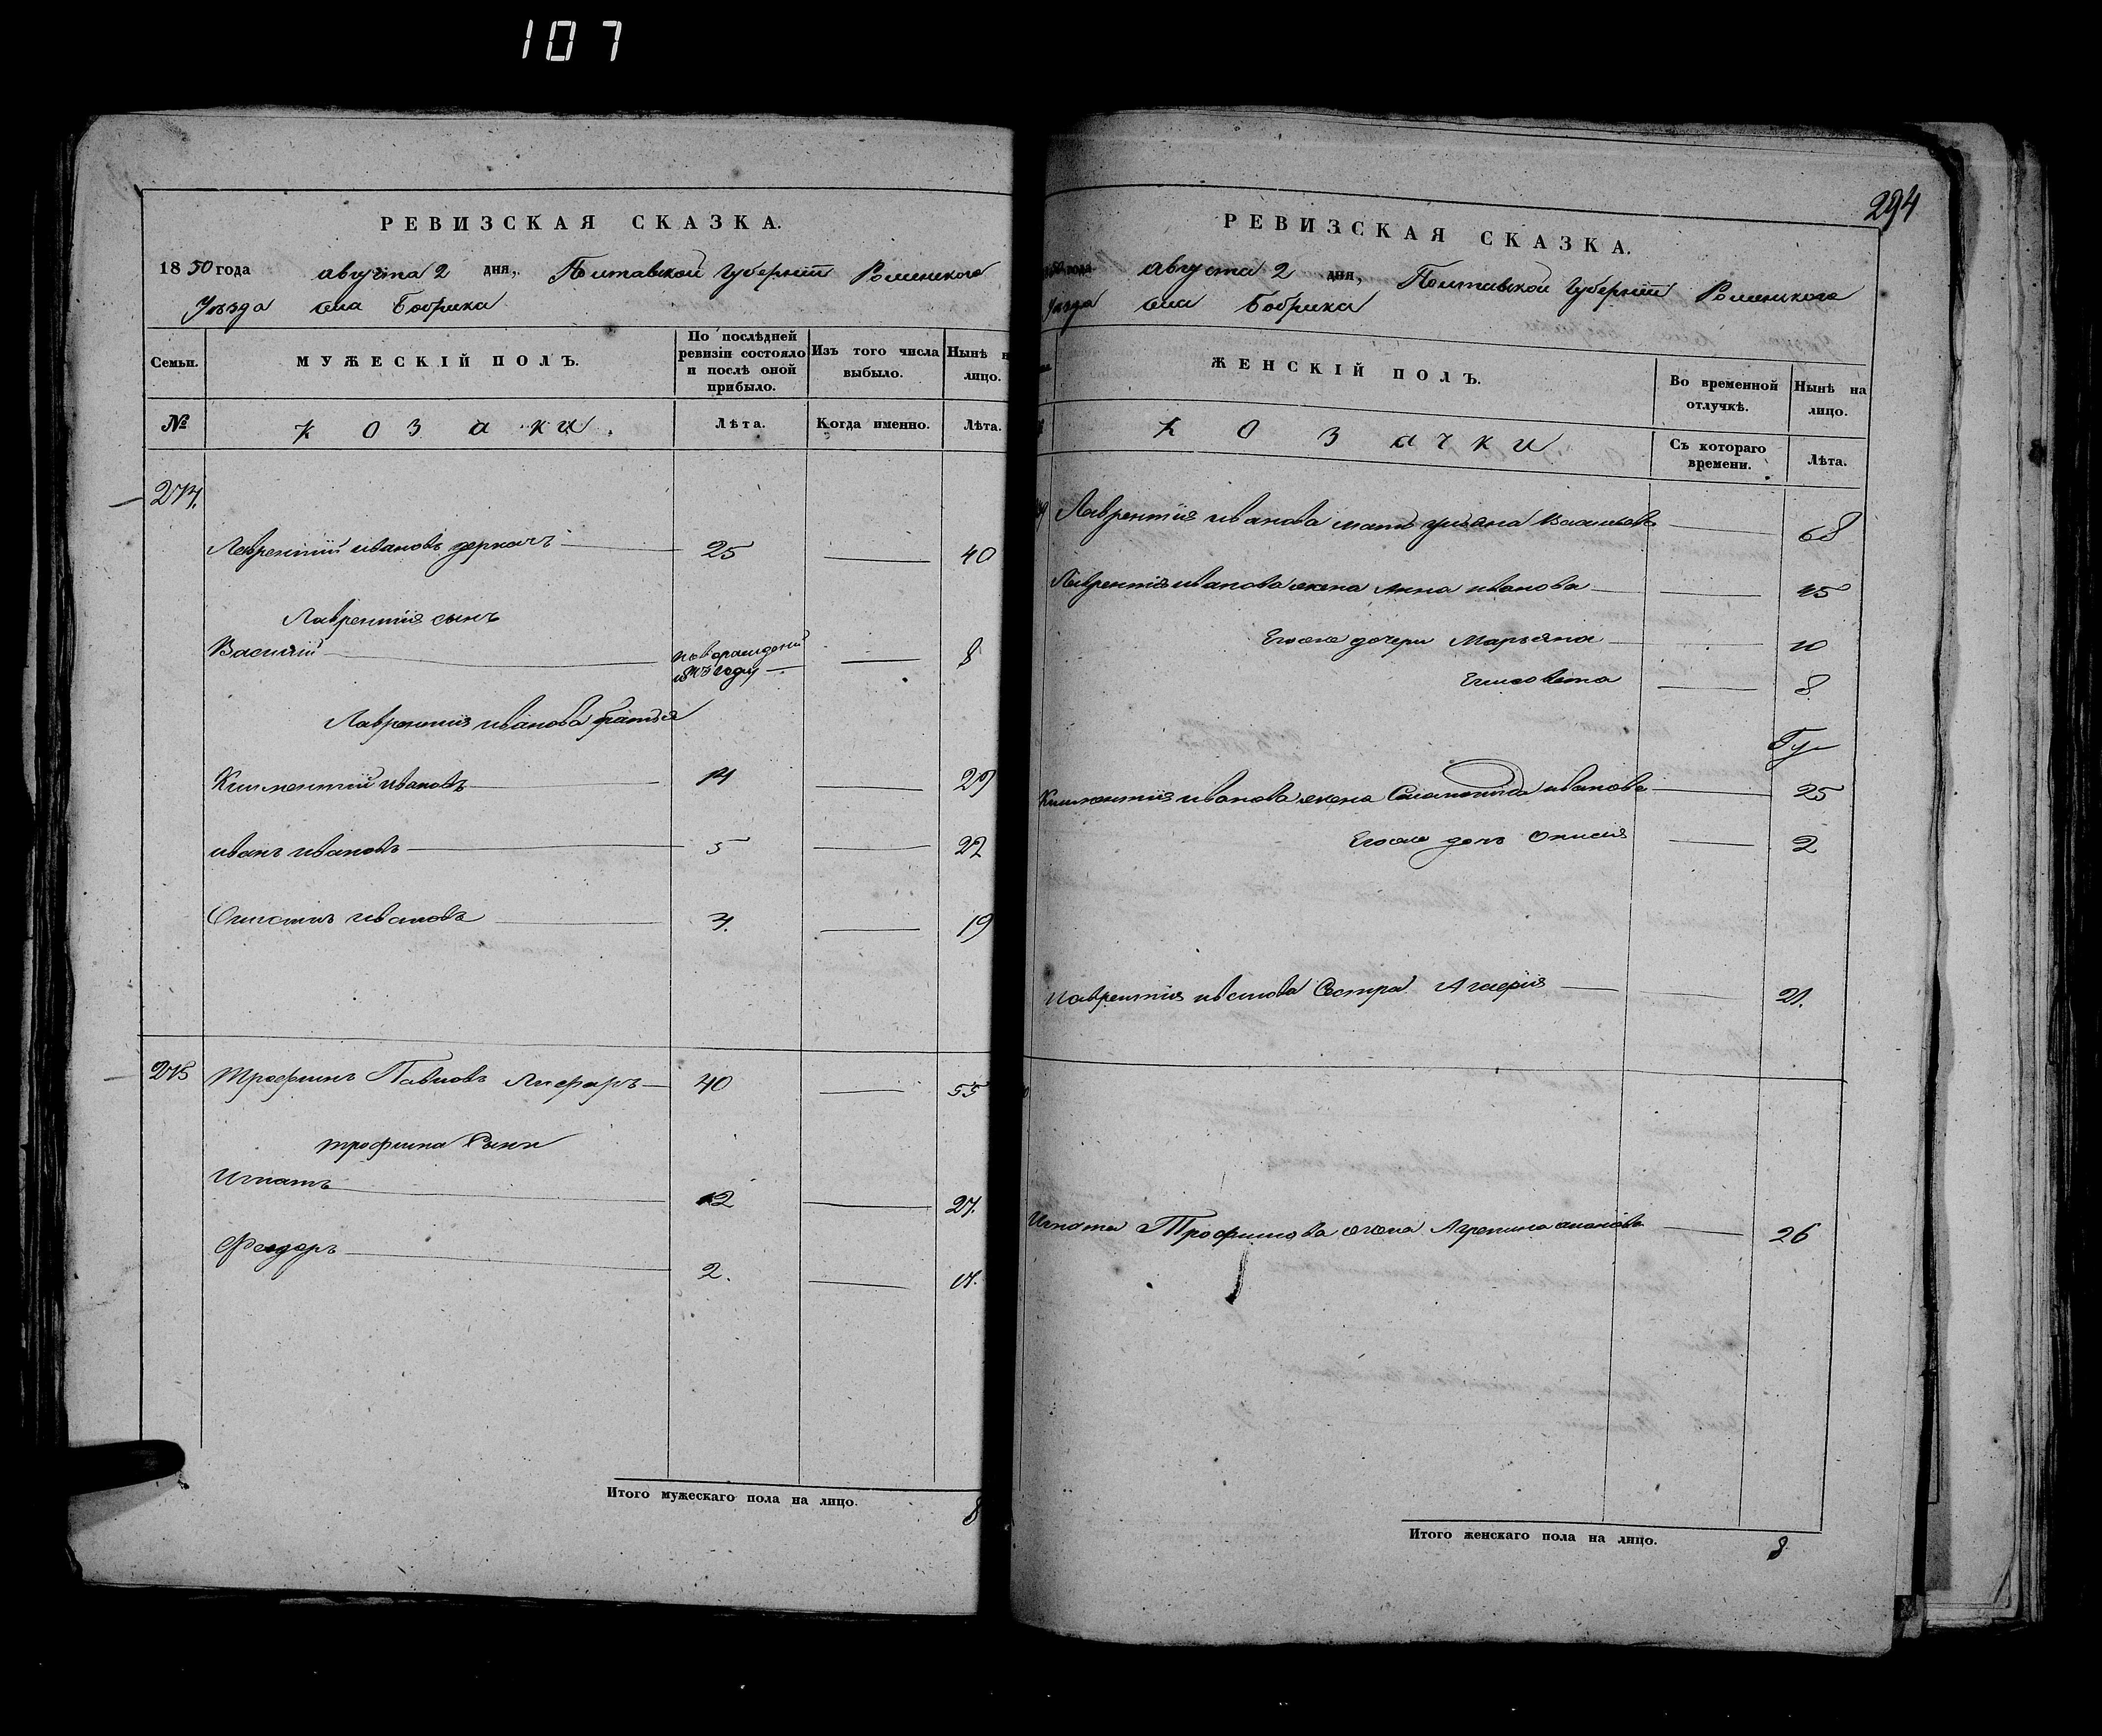 107
РЕВИЗСКАЯ СКАЗКА.
1850 года августа 2 дня, Полтавской губерніи Роменского
Уезда села Бобрика
Семьи. МУЖЕСКІЙ ПОЛЪ. По послѣдней ревизіи состояло и послѣ оной прибыло. Изъ того числа выбыло. Нынѣ н лицо.
№ козаки. Лѣта. Когда именно. Лѣта.
274.
Лаврентій ивановъ деркачъ 25 40
Лаврентія сынъ
Василій новорожденый 8
184 году
Лаврентія иванова братья
Климентій ивановъ 14 29
иванъ ивановъ 5 22
ивановъ 4. 19
275 Трофимъ Павловъ Лисфаръ 40 55
трофима Сыны
Игнатъ 12 27.
Федоръ 2. 17.
Итого мужескаго пола на лицо. 8
294
РЕВИЗСКАЯ СКАЗКА.
года августа 2 дня, Полтавской губерніи Роменского
Уезда села Бобрика
ЖЕНСКІЙ ПОЛЪ. Во временной отлучкѣ. Нынѣ на лицо.
козачки Съ котораго времени. Лѣта.
Лаврентія иванова мать ульяна Васильева 68
Лаврентія иванова жена Анна иванова
Егоже дочери Марьяна 10
Елисовета 8
Климентія иванова жена Соломонида иванова 25
Егоже дочь Онисія 2
Лаврентія иванова Сестра Агафія 21.
Игната Трофимова жена Агрепина 26
Итого женскаго пола на лицо. 8